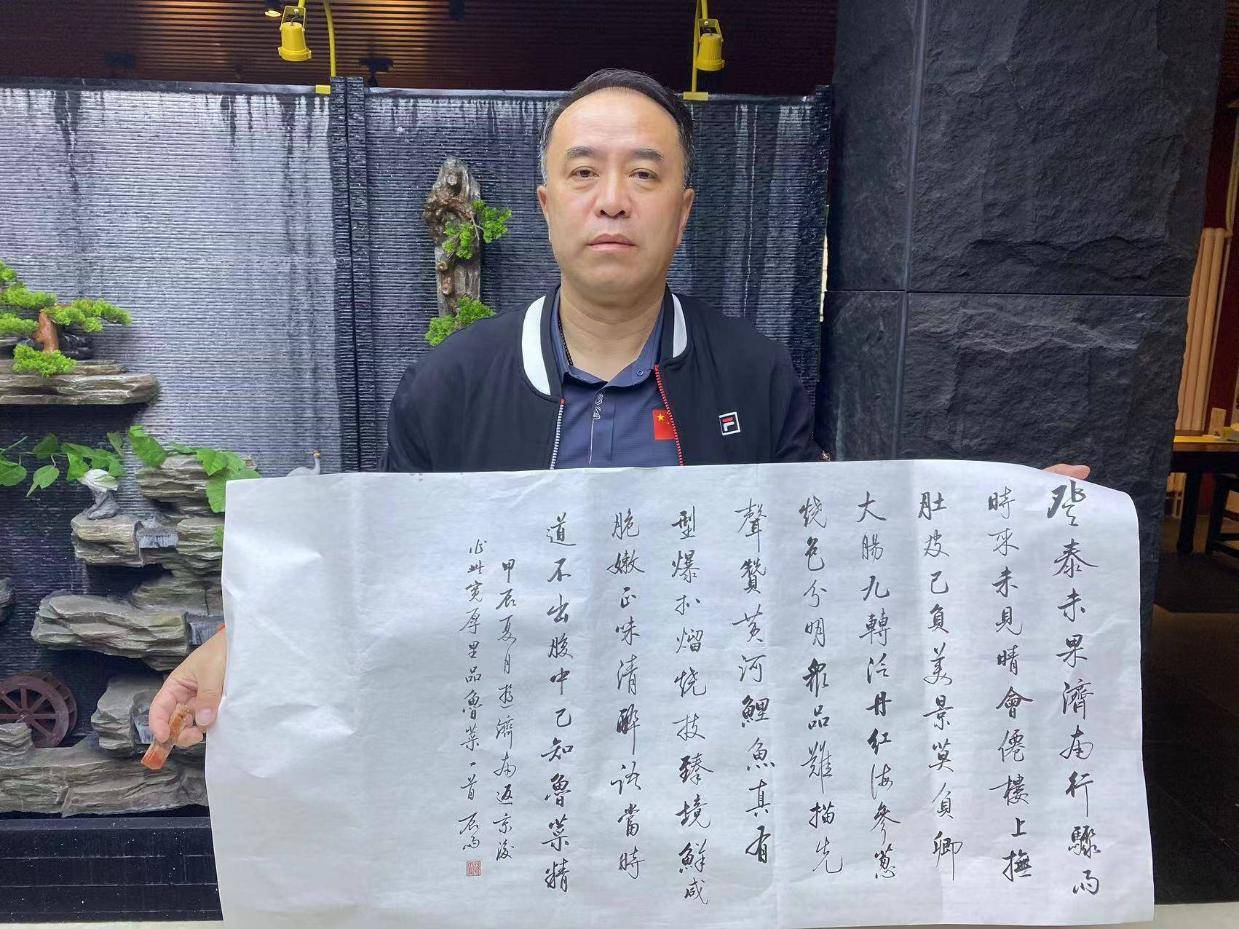 登泰未果濟南行驟雨
時來未見晴會僊樓上撫
肚皮已負美景莫負卿
大腸九轉活丹紅海參蔥
燒色分明眾品難描先
聲贊黃河鯉魚真有
型爆扒熘燒技臻境鮮咸
脆嫩正味清醉語當時
道不出腹中已知魯菜精
甲辰夏月游濟南返京後
作此寬厚里品魯菜一首 石雨